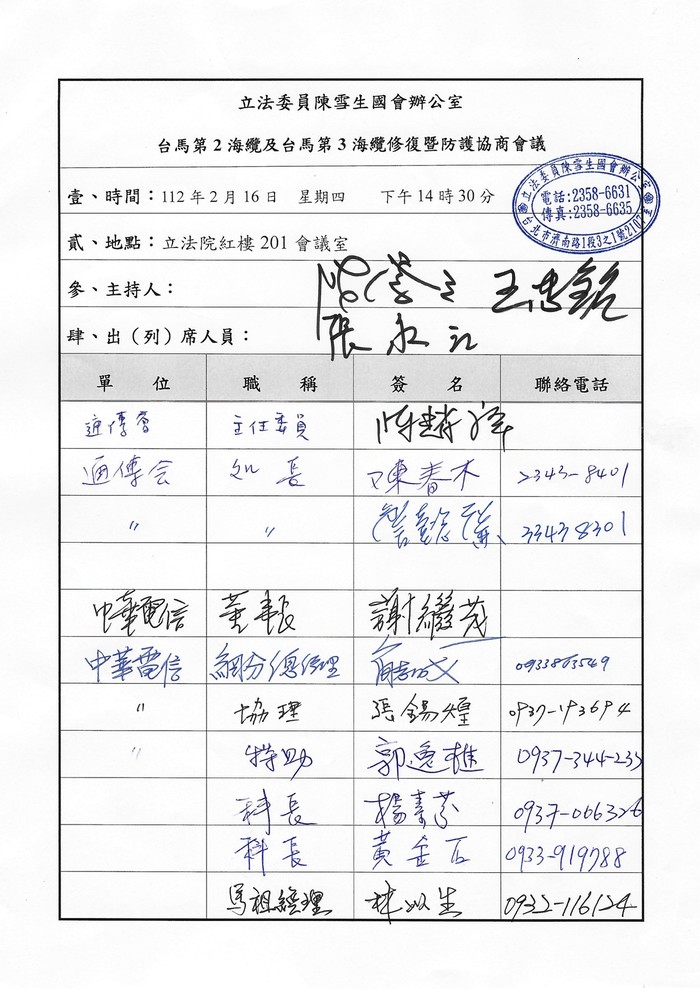 立法委員陳雪生國會辦公室
台馬第2海纜及台馬第3海纜修復暨防護協商會議
壹、時間：112年2月16日 星期四 下午14時30分
立法委員陳雪生國會辦公室
電話:2358-6631
傳真:2358-6635
台北市濟南路1段3之1號2107室
貳、地點：立法院紅樓201會議室
參、主持人：
肆、出（列）席人員：
張永江
單位 職稱 簽名 聯絡電話
通傳會 主任委員
通傳会 處長 陳春木 2343-8401
〃 〃 33438301
中華電信 董事長 謝繼茂
中華電信 網分總經理 0933863549
〃 協理 張錫煌 0937-193694
〃 特助 0937-344-235
科長 楊素芬 0937-066326
科長 黃金石 0933-919788
馬祖經理 林以生 0932-116124